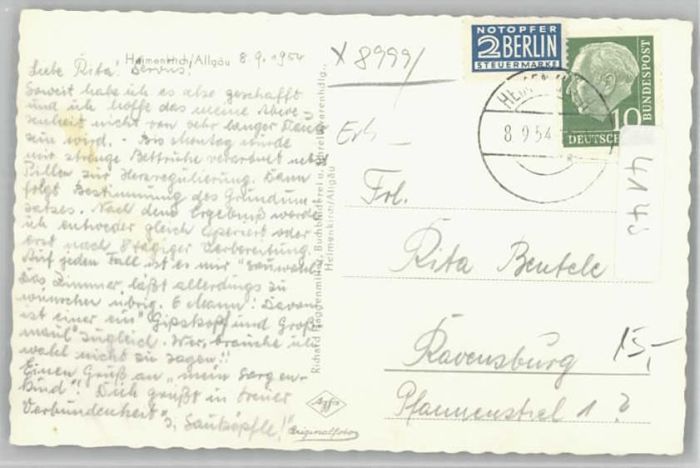 Heimenkirch/Allgäu 8.9.1954
Liebe Rita! Servus!
Soweit habe ich es also geschafft
und ich hoffe das meine Abwe
senheit nicht von sehr langer Dauer
sein wird. - Bis Montag wurde
mir strenge Bettruhe verordnet und
Pillen zur Herzregulierung. Dann
folgt Bestimmung des Grundum-
satzes. Nach dem Ergebnis werde
ich entweder gleich operiert oder
erst nach 8 tägiger Vorbereitung.
Auf jeden Fall ist es mir "sauwohl"
Das Zimmer, läßt allerdings zu
wünschen übrig. 6 Mann! Davon
ist einer ein "Gipskopf und Groß
maul" zugleich. Wer, brauche ich
wohl nicht zu sagen!!
Einen Gruß an "mein Sorgen-
kind"! Dich grüßt in treuer
Verbundenheit "s' Sauköpfle!"
Richard Haggenmiller, Buchbinderei u. Schreibwarenhdlg.,
Heimenkirch/Allgäu
Agfa
Originalfoto
X 8999/
NOTOPFER
2 BERLIN
STEUERMARKE
DEUTSCHE
BUNDESPOST
10
8.9.54
4143
Frl.
Rita Bentele
Ravensburg
Pfannenstiel 1
15,-